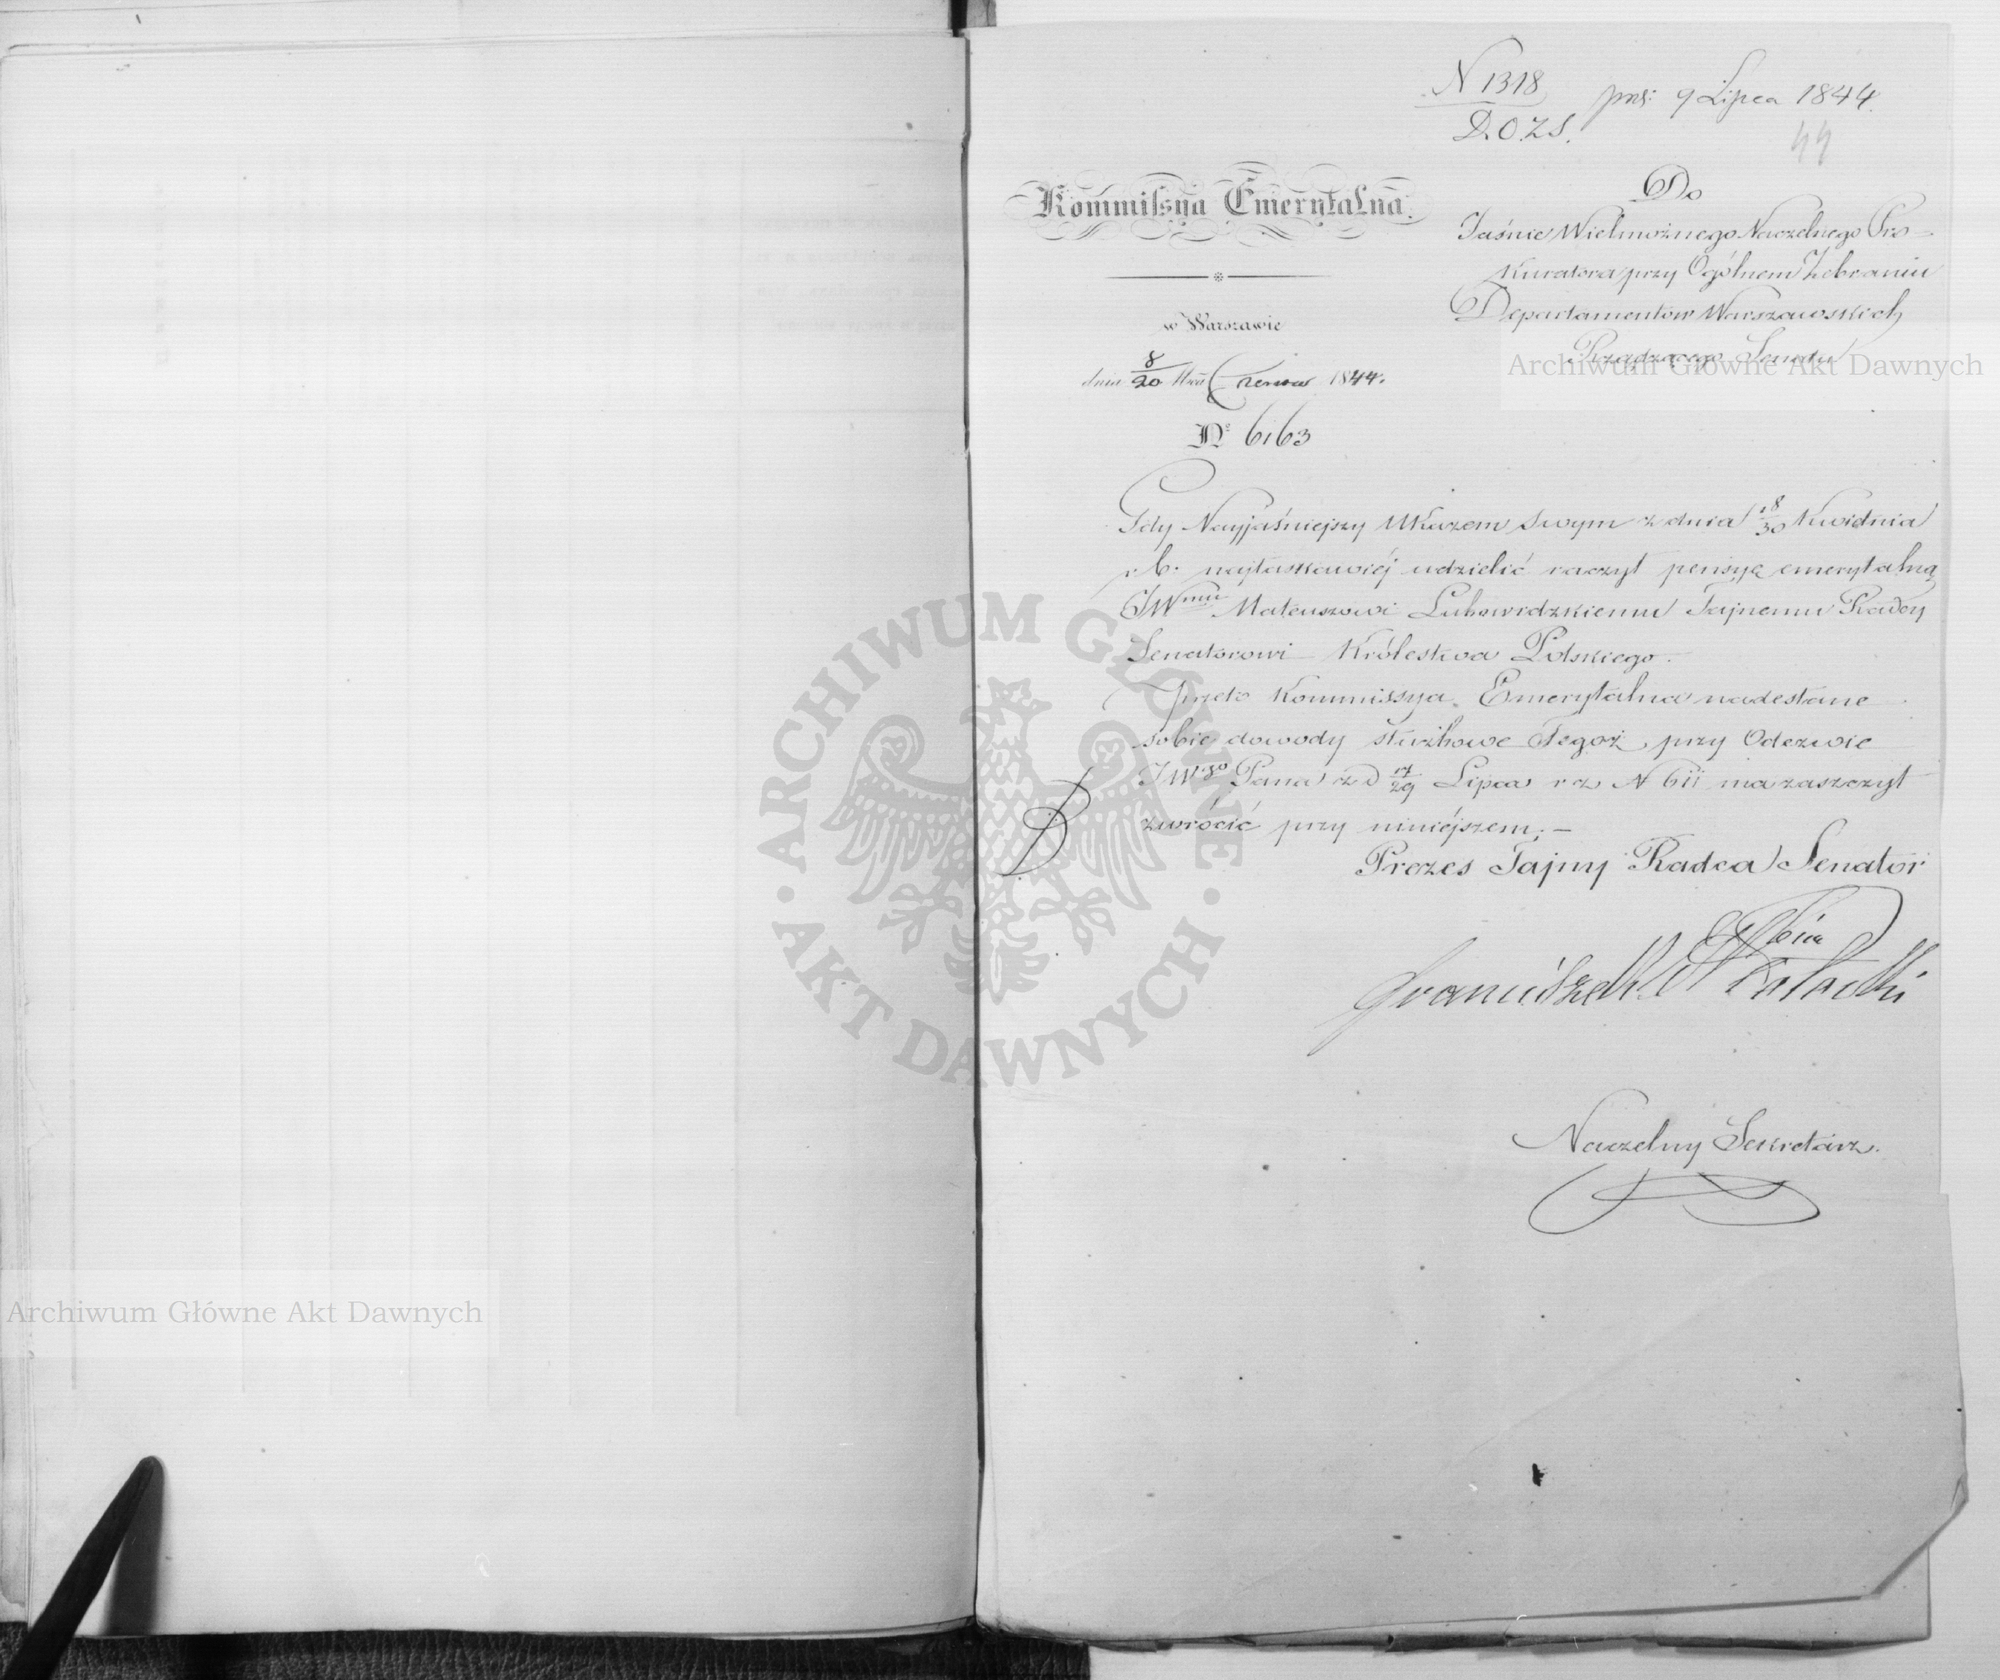 N 1318 prs: 9 Lipca 1844.
D.O.Z.S.
44
Kommissya Emerytalna.
w Warszawie
dnia 8/20 Mca Czerwca 1844.
Nº 6163
Do
Jaśnie Wielmożnego Naczelnego Pro-
kuratora przy Ogólnem Zebraniu
Departamentów Warszawskich
Rządzącego Senatu
Gdy Nayjaśniejszy Ukazem Swym z dnia 18/30 Kwietnia
r. b. najłaskawiéj udzielić raczył pensyę emerytalną
JWmu Mateuszowi Lubowidzkiemu Tajnemu Radcy
Senatorowi Królestwa Polskiego.
przeto Kommissya Emerytalna nadesłane
sobie dowody służbowe Tegoż, przy Odezwie
JWgo Pana z D 17/29 Lipca r z N 611 ma zaszczyt
zwrócić przy niniéjszem. –
Prezes Tajny Radca Senator
Franciszek Potocki
Naczelny Sekretarz.
Archiwum Główne Akt Dawnych
Archiwum Główne Akt Dawnych
ARCHIWUM GŁÓWNE
· AKT DAWNYCH ·